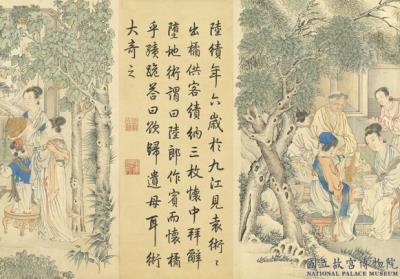 陸績年六歲於九江見袁術〻
出橘供客績納三枚懷中拜辭
墮地術謂曰陸郎作賓而懷橘
乎績跪答曰欲歸遺母耳術
大奇之
國立故宮博物院
NATIONAL PALACE MUSEUM